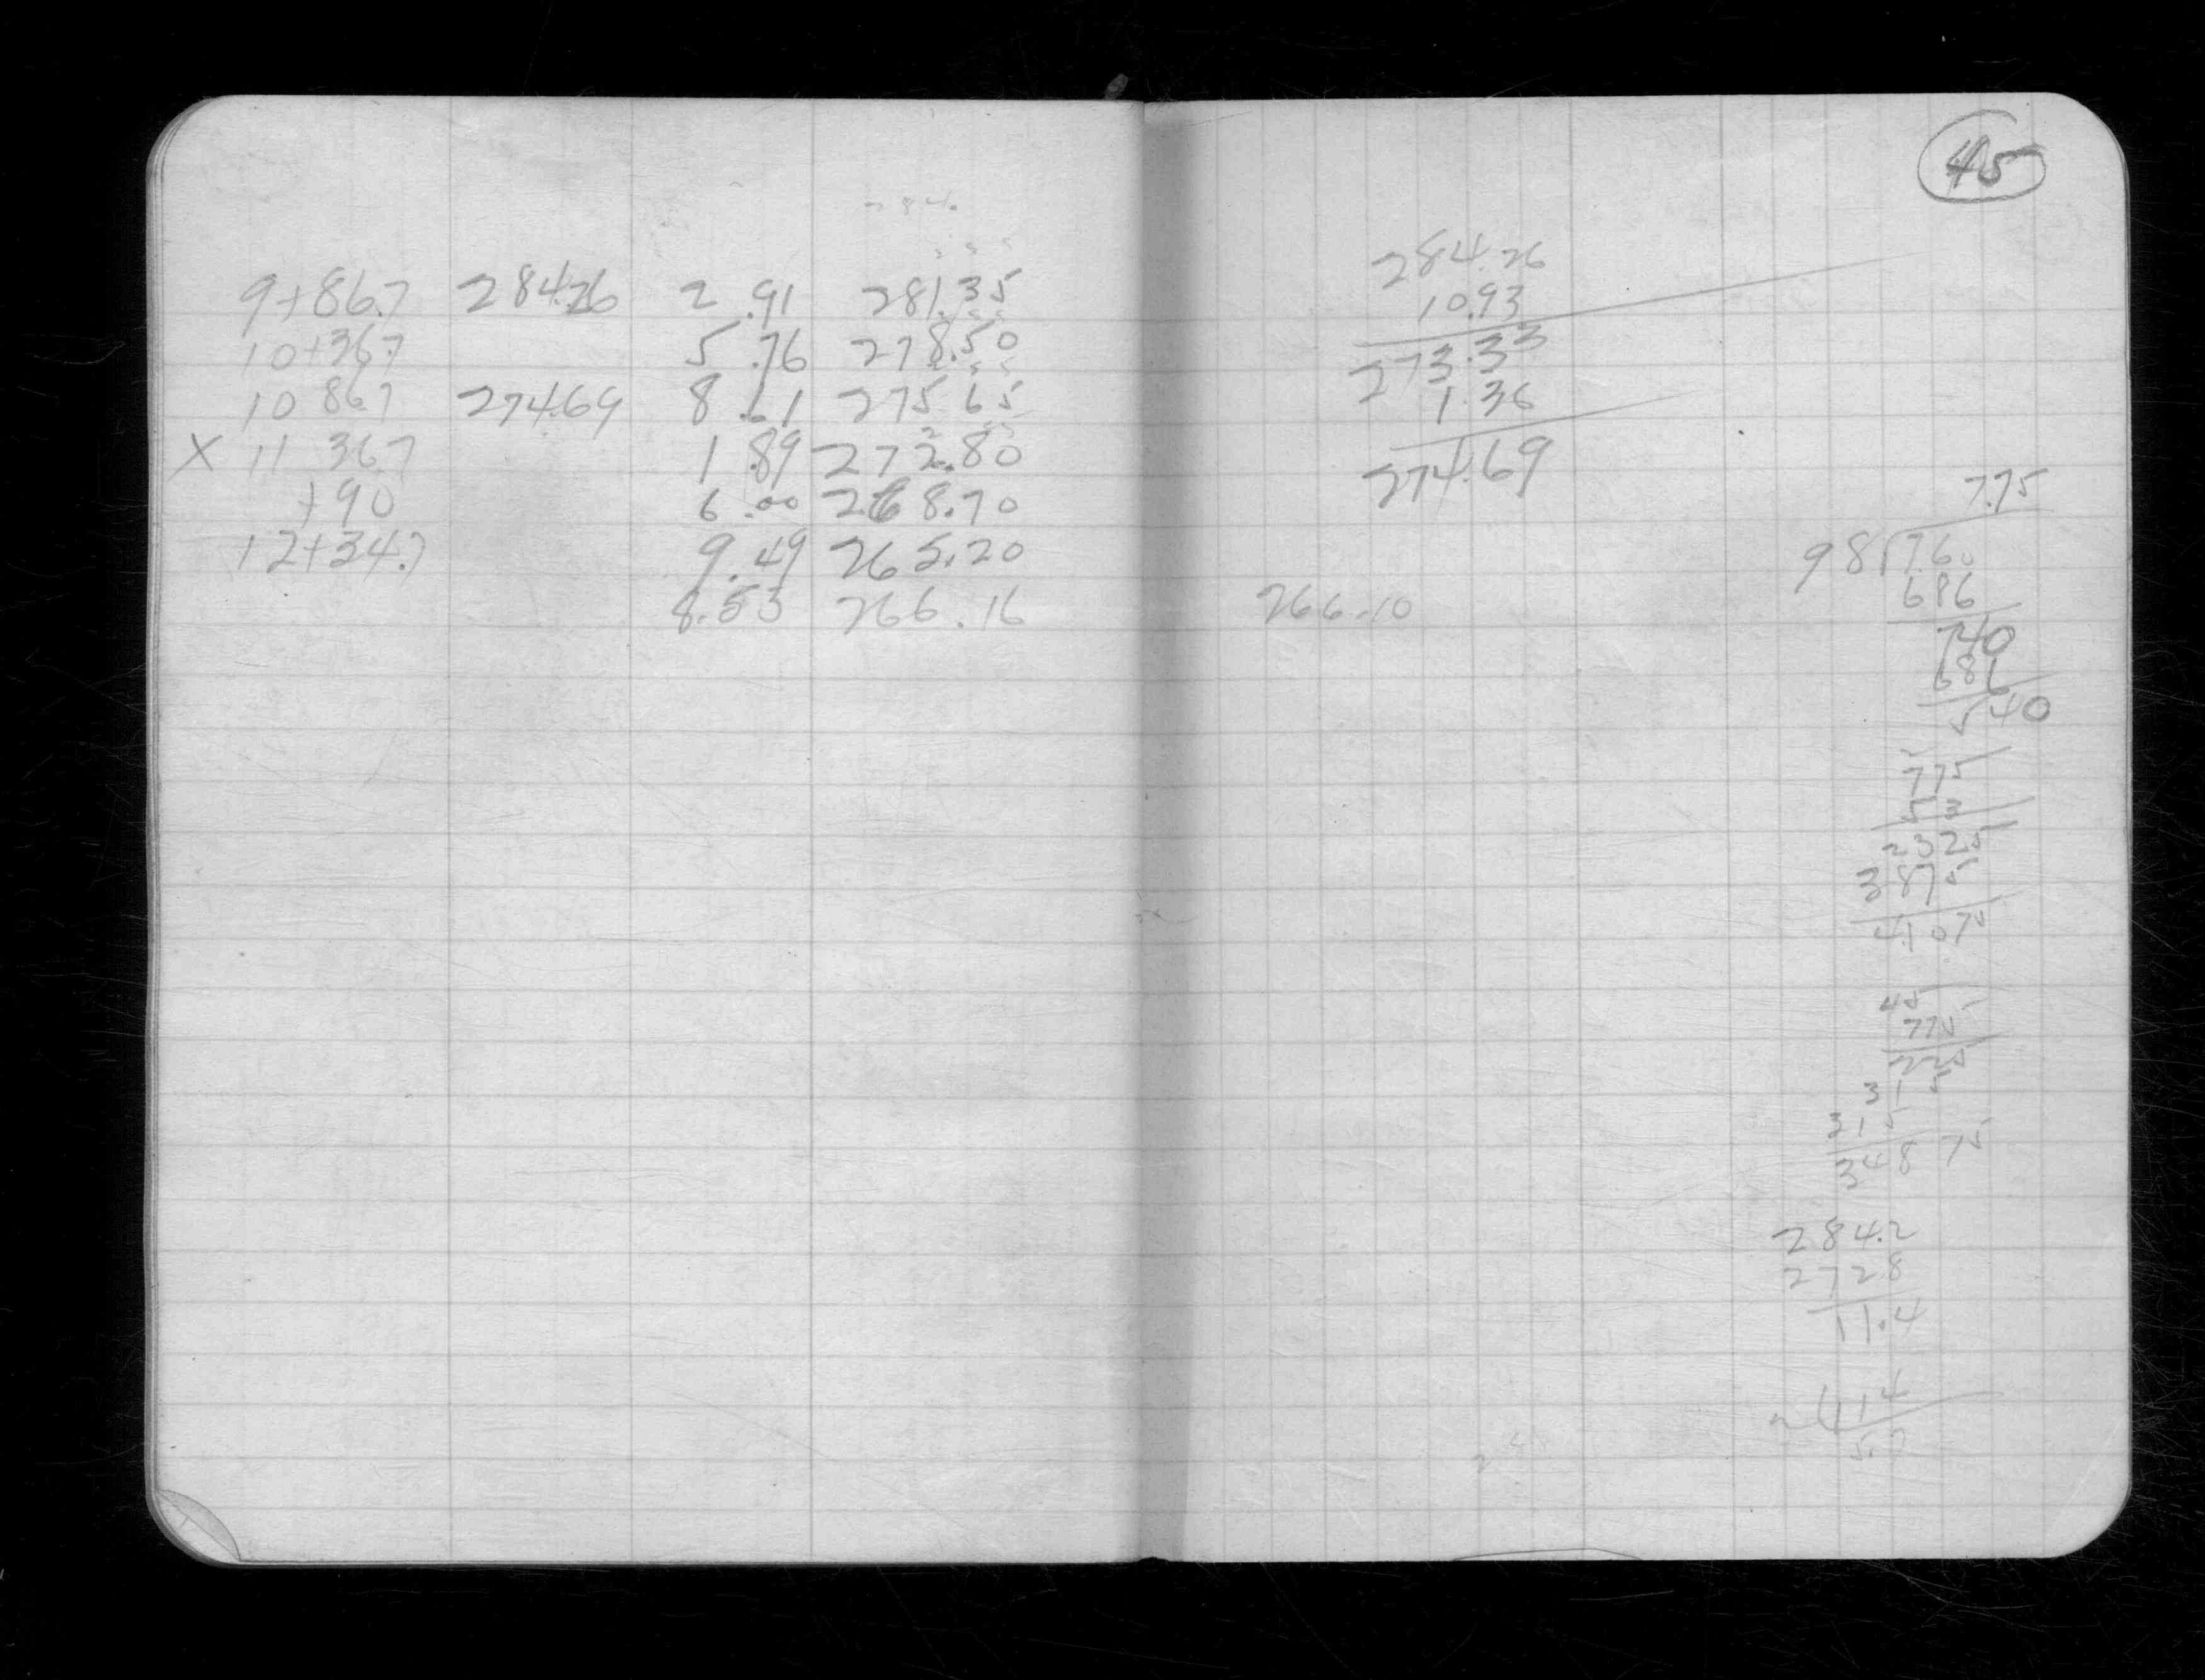 9+86.7 284.26 2.91 281.35
10+36.7 5.76 278.50
10 86.7 274.69 8.61 275.65
X 11 36.7 1.89 272.80
+90 6.00 268.70
12+34.7 9.49 265.20
8.53 266.16
45
284.26
10.93
273.33
1.36
274.69
266.10
7.75
98 7.60
686
740
686
540
775
53
2325
3875
41075
45
775
225
315
315
34875
284.2
272.8
11.4